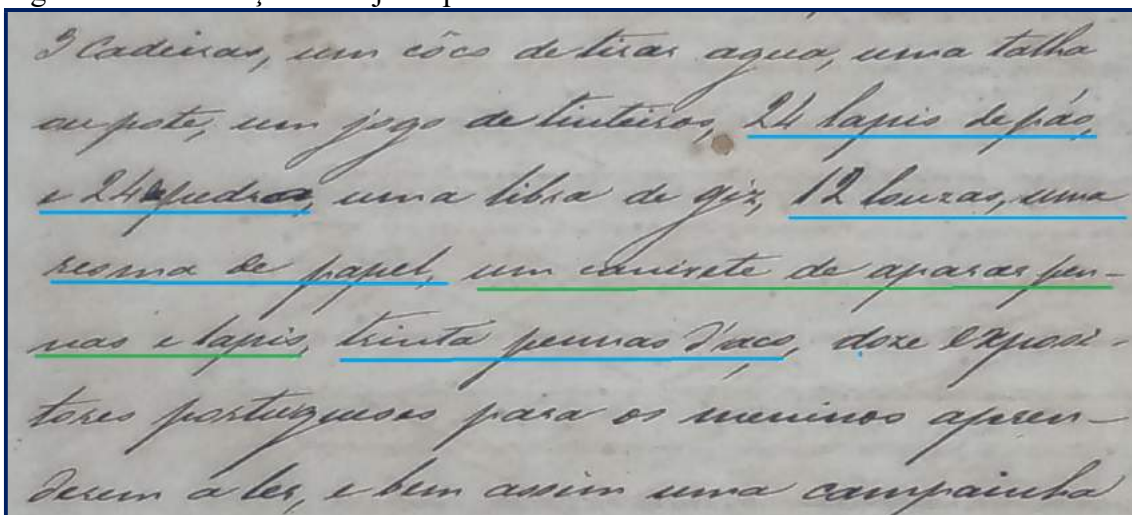 3 Cadeiras, um côco de tirar agua, uma talha
ou pote, um jogo de tinteiros, 24 lapis de páo,
e 24 pedra, uma libra de giz, 12 louzas, uma
resma de papel, um canivete de aparar pen-
nas e lapis, trinta pennas d'aço, doze exposi-
tores portuguezes para os meninos apren-
derem a ler, e bem assim uma campainha